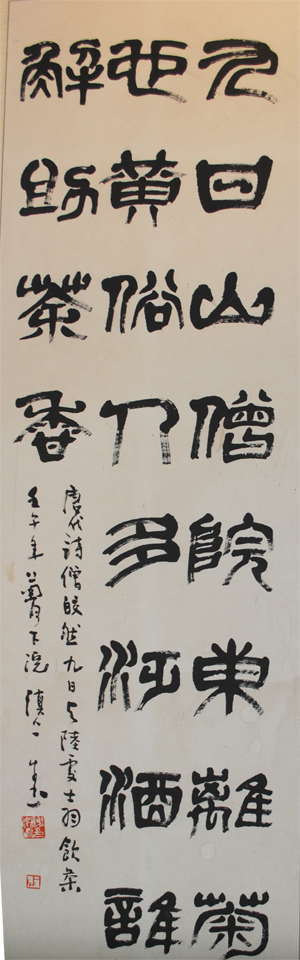 九日山僧院東離菊
也黄俗人多汎酒誰
解助茶香
唐代詩僧皎然九日与陸處士羽飲茶
壬午年菊月下浣